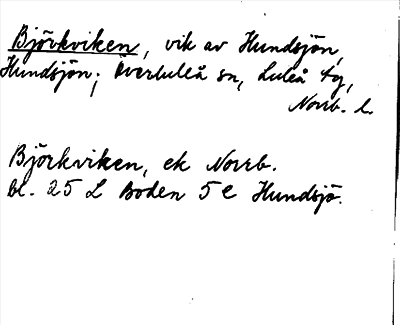 Björkviken, vik av Hundsjön,
Hundsjön; Överluleå sn, Luleå tg,
Norrb. l.
Björkviken, ek Norrb.
bl. 25 L Boden 5 e Hundsjö.